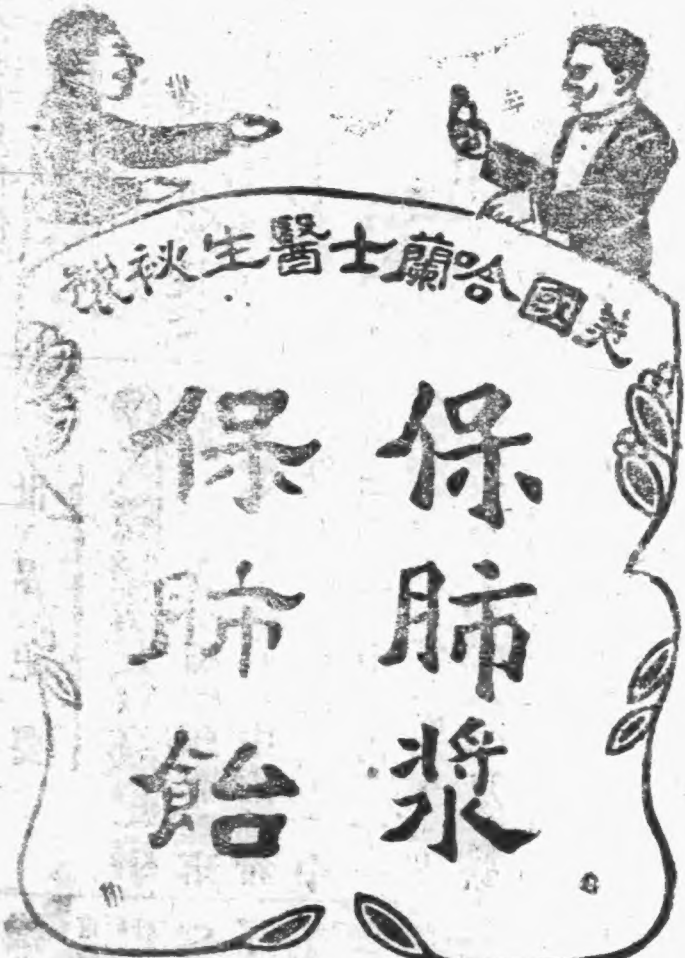 美國哈蘭士醫生秘製
保肺漿
保肺飴